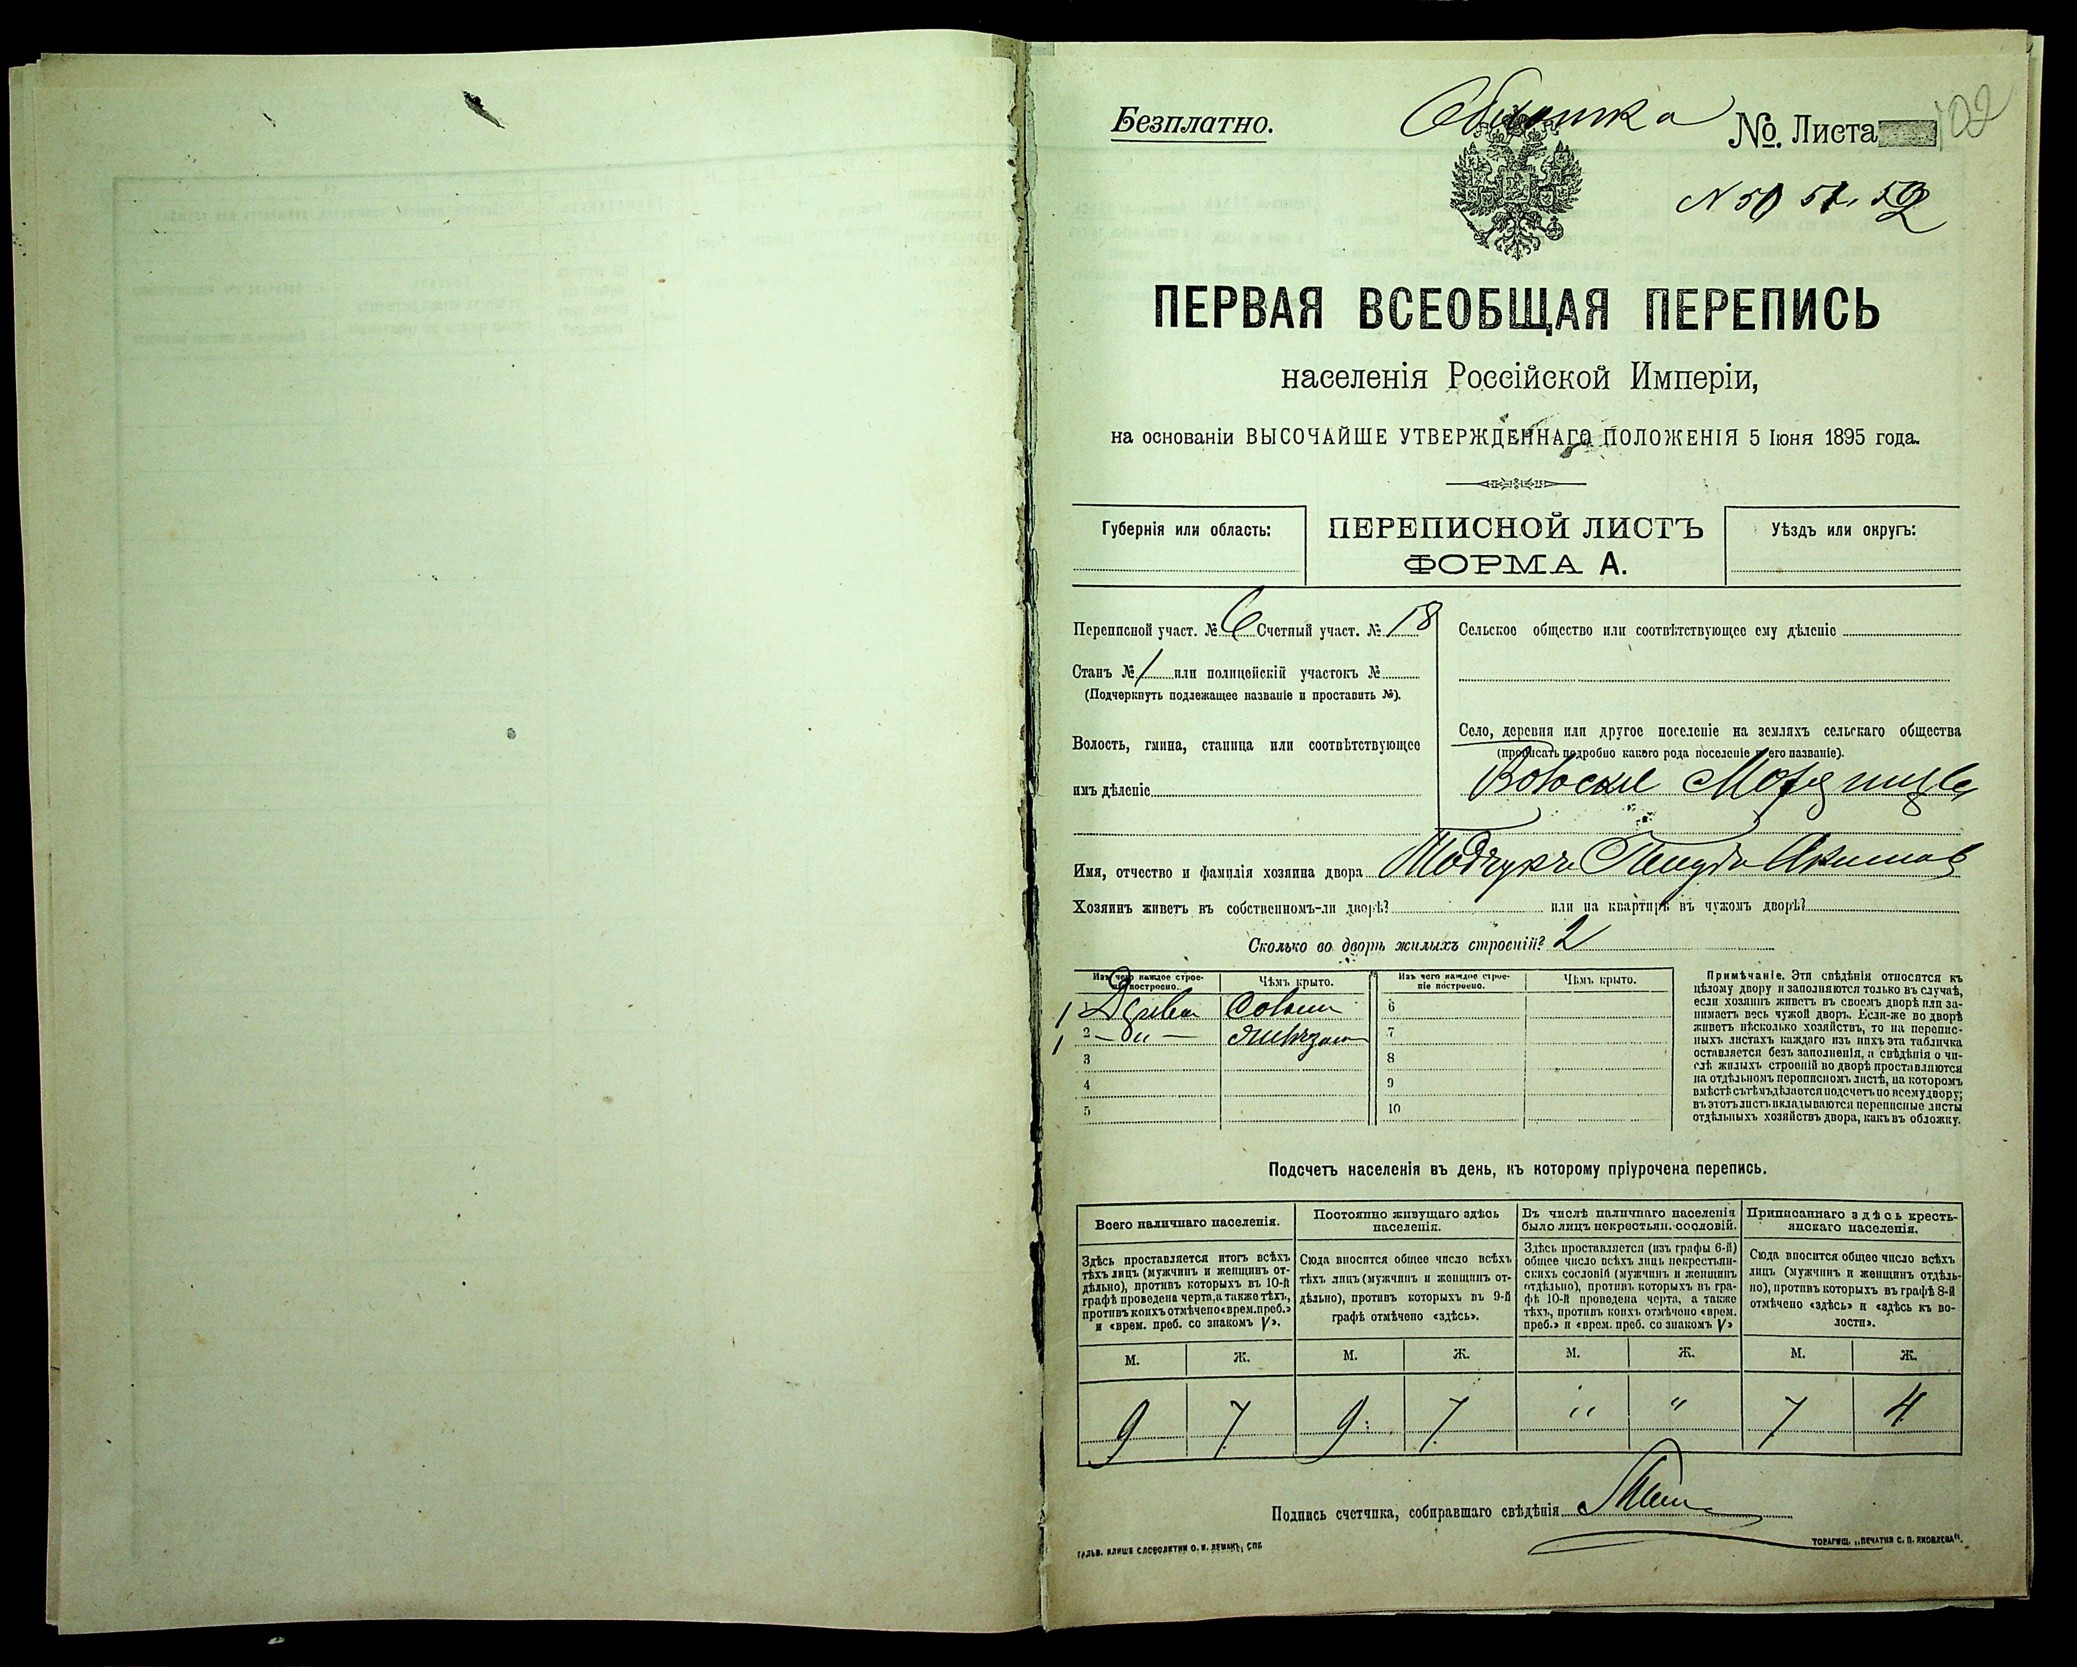 Безплатно.
Обложка
№. Листа
102
N 50 51. 52
ПЕРВАЯ ВСЕОБЩАЯ ПЕРЕПИСЬ
населенія Россійской Имперіи,
на основаніи ВЫСОЧАЙШЕ УТВЕРЖДЕННАГО ПОЛОЖЕНІЯ 5 Іюня 1895 года.
Губернія или область:
ПЕРЕПИСНОЙ ЛИСТЪ
ФОРМА А.
Уѣздъ или округъ:
Переписной участ. № 6 Счетный участ. № 18
Станъ № 1 или полицейскій участокъ №
(Подчеркнуть подлежащее названіе и проставить №).
Волость, гмина, станица или соотвѣтствующее
имъ дѣленіе
Сельское общество или соотвѣтствующее ему дѣленіе
Село, деревня или другое поселеніе на земляхъ сельскаго общества
(прописать подробно какого рода поселеніе и его названіе).
Имя, отчество и фамилія хозяина двора
Хозяинъ живетъ въ собственномъ-ли дворѣ? или на квартирѣ въ чужомъ дворѣ?
Сколько во дворѣ жилыхъ строеній? 2
Изъ чего каждое строе-
ніе построено.
Чѣмъ крыто.
Изъ чего каждое строе-
ніе построено.
Чѣмъ крыто.
1 1 6
1 2 7
3 8
4 9
5 10
Примѣчаніе. Эти свѣдѣнія относятся къ
цѣлому двору и заполняются только въ случаѣ,
если хозяинъ живетъ въ своемъ дворѣ или за-
нимаетъ весь чужой дворъ. Если-же во дворѣ
живетъ нѣсколько хозяйствъ, то на перепис-
ныхъ листахъ каждаго изъ нихъ эта табличка
оставляется безъ заполненія, а свѣдѣнія о чи-
слѣ жилыхъ строеній во дворѣ проставляются
на отдѣльномъ переписномъ листѣ, на которомъ
вмѣстѣ съ тѣмъ дѣлается подсчетъ по всему двору;
въ этотъ листъ вкладываются переписные листы
отдѣльныхъ хозяйствъ двора, какъ въ обложку.
Подсчетъ населенія въ день, къ которому пріурочена перепись.
Всего наличнаго населенія.
Здѣсь проставляется итогъ всѣхъ
тѣхъ лицъ (мужчинъ и женщинъ от-
дѣльно), противъ которыхъ въ 10-й
графѣ проведена черта, а также тѣхъ,
противъ коихъ отмѣчено «врем. преб.»
и «врем. преб. со знакомъ V».
Постоянно живущаго здѣсь
населенія.
Сюда вносится общее число всѣхъ
тѣхъ лицъ (мужчинъ и женщинъ от-
дѣльно), противъ которыхъ въ 9-й
графѣ отмѣчено «здѣсь».
Въ числѣ наличнаго населенія
было лицъ некрестьян. сословій.
Здѣсь проставляется (изъ графы 6-й)
общее число всѣхъ лицъ некрестьян-
скихъ сословій (мужчинъ и женщинъ
отдѣльно), противъ которыхъ въ гра-
фѣ 10-й проведена черта, а также
тѣхъ, противъ коихъ отмѣчено «врем.
преб.» и «врем. преб. со знакомъ V»
Приписаннаго здѣсь кресть-
янскаго населенія.
Сюда вносится общее число всѣхъ
лицъ (мужчинъ и женщинъ отдѣль-
но), противъ которыхъ въ графѣ 8-й
отмѣчено «здѣсь» и «здѣсь къ во-
лости».
М. Ж. М. Ж. М. Ж. М. Ж.
9 7 9 7 " " 7 4
Подпись счетчика, собиравшаго свѣдѣнія
ГАЛЬВ. КЛИШЕ СЛОВОЛИТНИ О. И. ЛЕМАНЪ, СПБ
ТОВАРИЩ. „ПЕЧАТНЯ С. П. ЯКОВЛЕВА“.